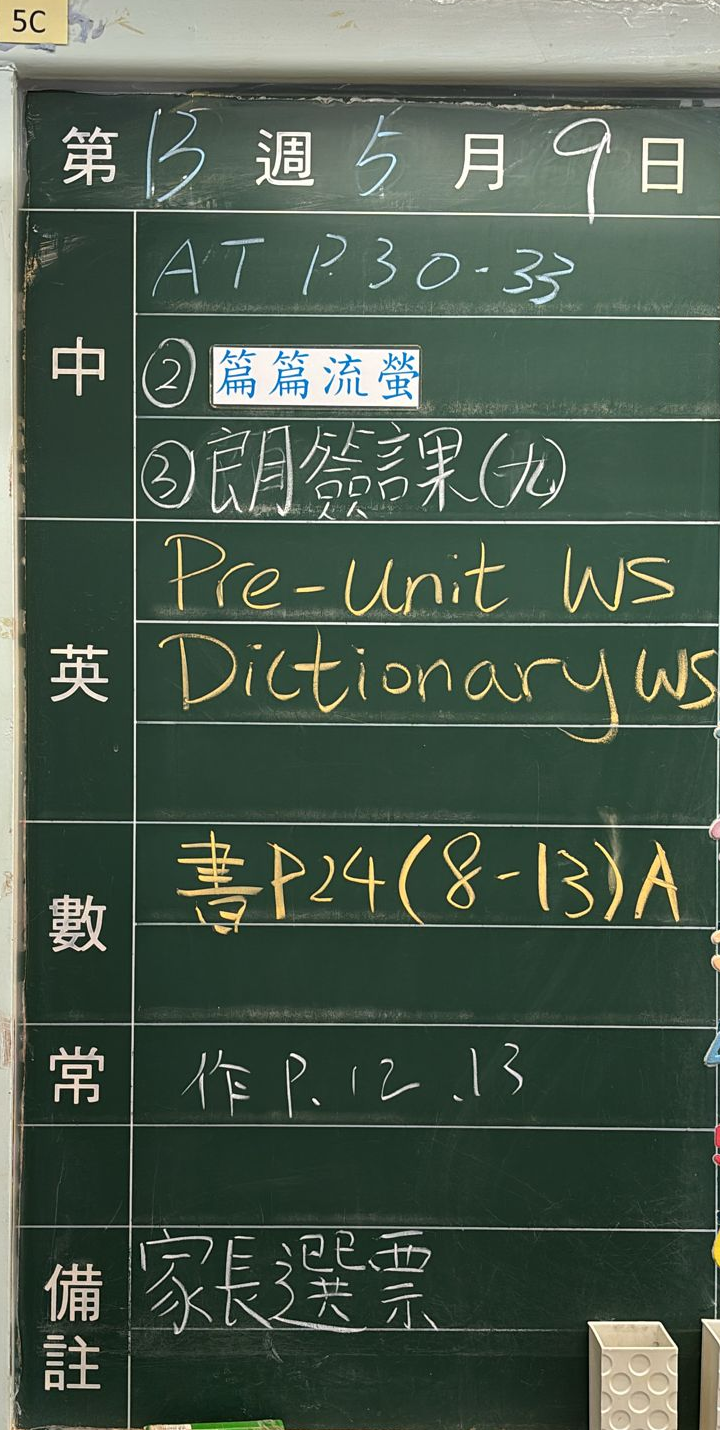 5C
第 13 週 5 月 9 日
中
AT P.30-33
② 篇篇流螢
③ 朗簽課(九)
英
Pre-Unit WS
Dictionary WS
數
書P24(8-13)A
常
作P.12.13
備註
家長選票